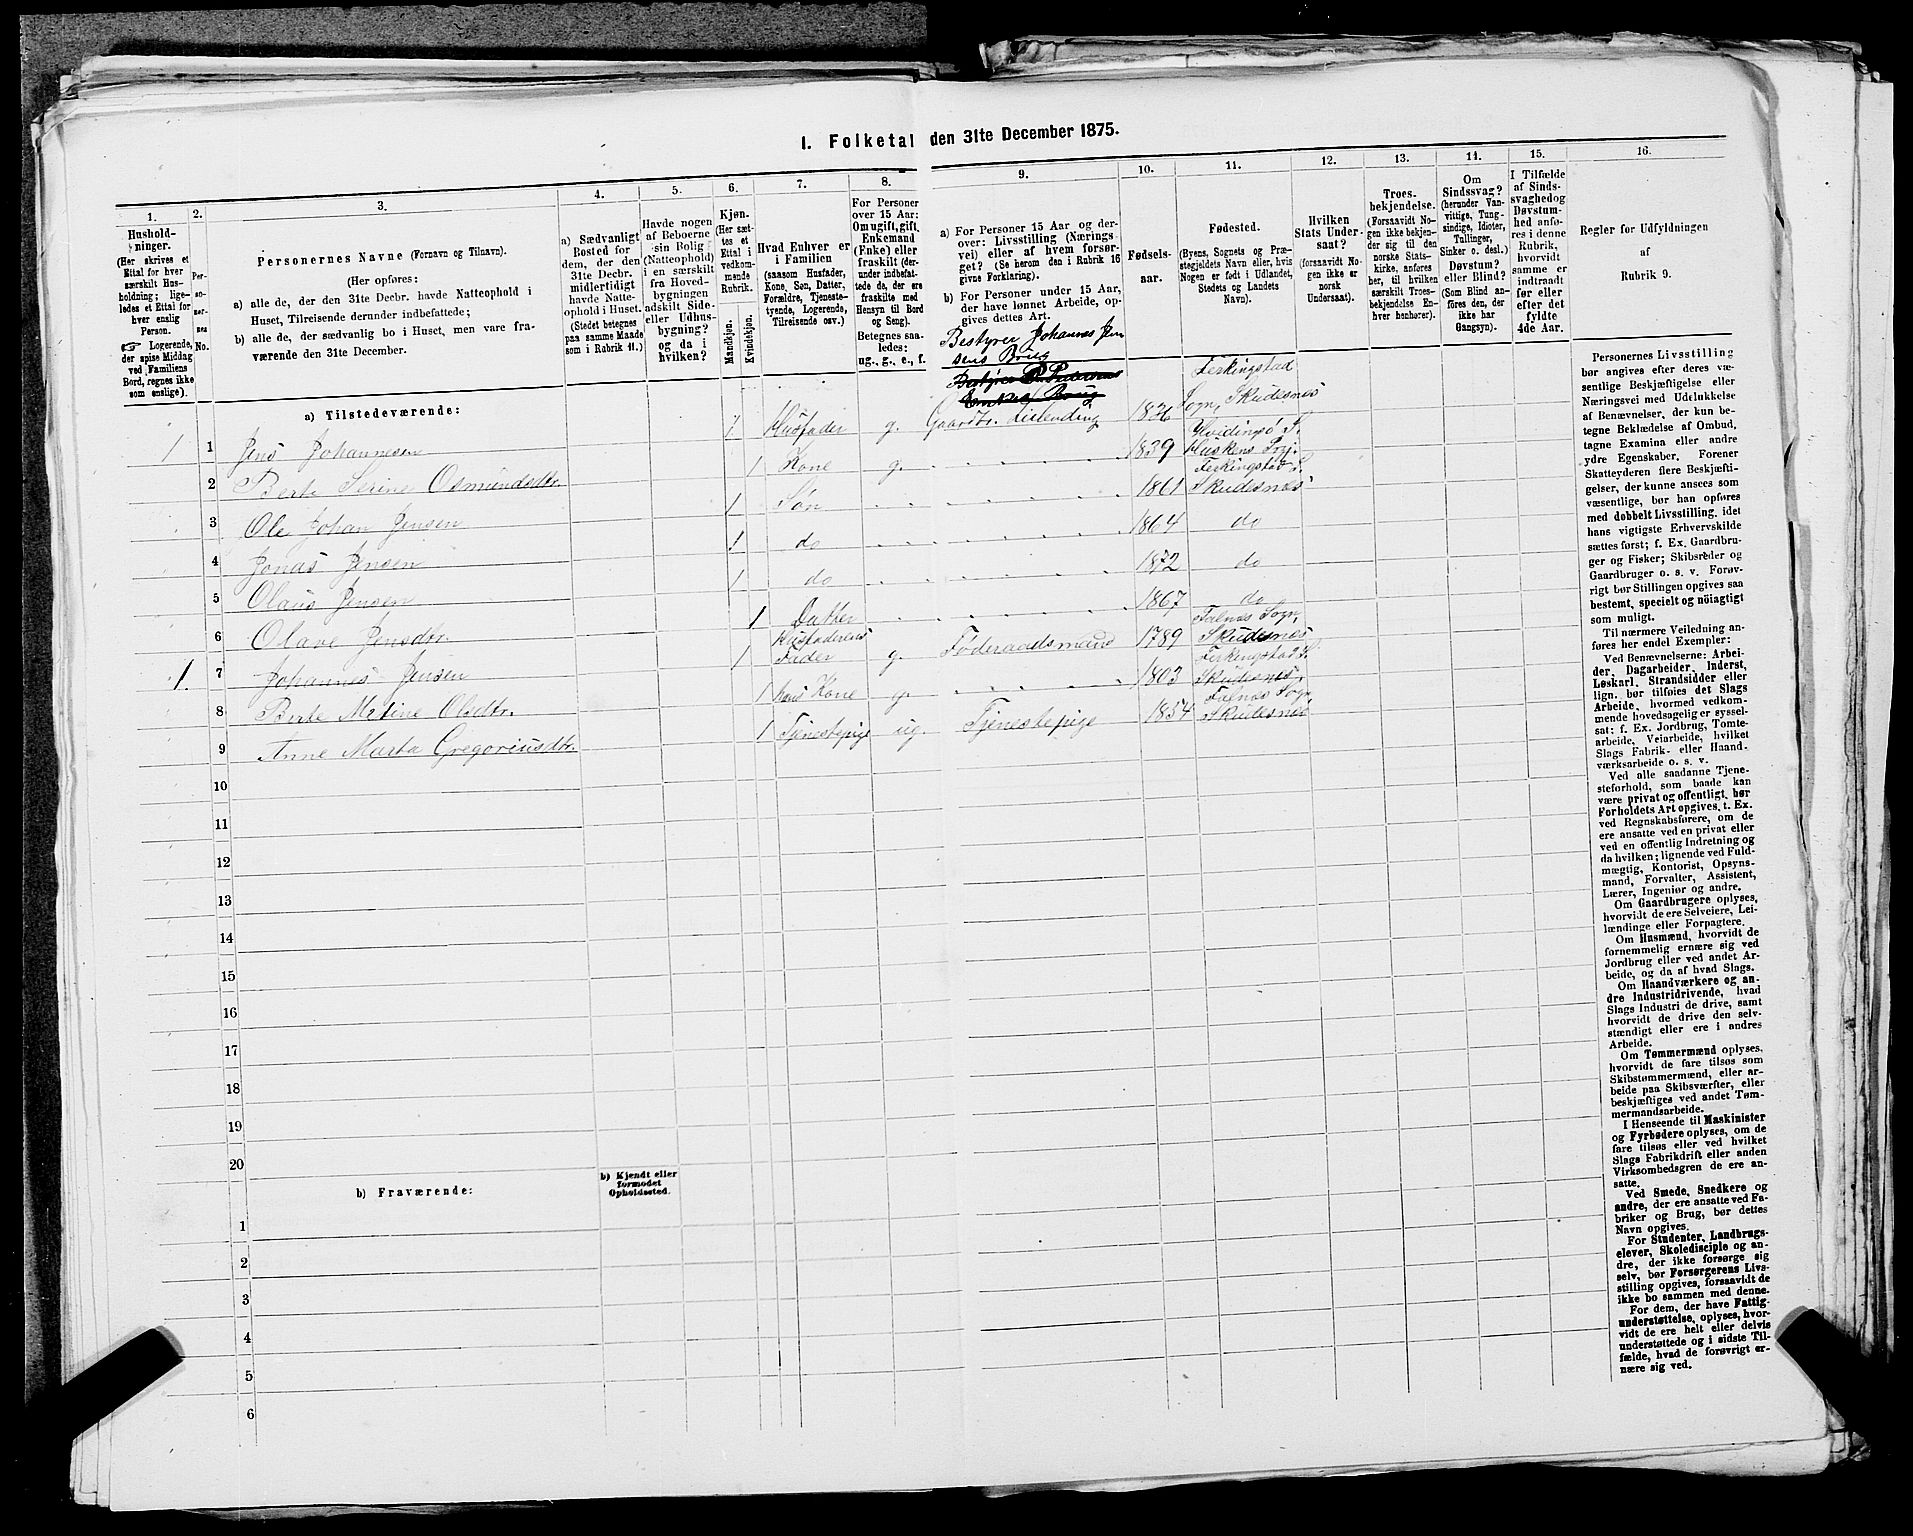 I. Folketal den 31te December 1875.
1. 2. 3. 4. 5. 6. 7. 8. 9. 10. 11. 12. 13. 14. 15. 16.
Hushold-
ninger.
(Her skrives et
Ettal for hver
særskilt Hus-
holdning; lige-
ledes et Ettal for
hver enslig
Person.
☞ Logerende,
der spise Middag
ved Familiens
Bord, regnes ikke
som enslige).
Per-
so-
ner-
nes
No.
Personernes Navne (Fornavn og Tilnavn).
(Her opføres:
a) alle de, der den 31te Decbr. havde Natteophold i
Huset, Tilreisende derunder indbefattede;
b) alle de, der sædvanlig bo i Huset, men vare fra-
værende den 31te December.
a) Sædvanligt
Bosted for
dem, der den
31te Decbr.
midlertidigt
havde Natte-
ophold i Huset.
(Stedet betegnes
paa samme Maade
som i Rubrik 11.)
Havde nogen
af Beboerne
sin Bolig
(Natteophold)
i en særskilt
fra Hoved-
bygningen
adskilt Side-
eller Udhus-
bygning?
og da i
hvilken?
Kjøn.
(Her sæt-
tes et
Ettal i
vedkom-
mende
Rubrik.
Mandkjøn.
Kvindekjøn.
Hvad Enhver er
i Familien
(saasom Husfader,
Kone, Søn, Datter,
Forældre, Tjeneste-
tyende, Logerende,
Tilreisende osv.)
For Personer
over 15 Aar:
Om ugift, gift,
Enkemand
(Enke) eller
fraskilt (der-
under indbefat-
tede de, der ere
fraskilte med
Hensyn til Bord
og Seng).
Betegnes saa-
ledes:
ug., g., e., f.
a) For Personer 15 Aar og der-
over: Livsstilling (Nærings-
vei) eller af hvem forsør-
get? (Se herom den i Rubrik 16
givne Forklaring).
b) For Personer under 15 Aar,
der have lønnet Arbeide, op-
gives dettes Art.
Bestyrer Johannes Jen
sens Brug
Fødsels-
aar.
Fødested.
(Byens, Sognets og Præ-
stegjeldets Navn eller, hvis
Nogen er født i Udlandet,
Stedets og Landets
Navn).
Hvilken
Stats Under-
saat?
(forsaavidt No-
gen ikke er
norsk
Undersaat).
Troes-
bekjendelse.
(Forsaavidt No-
gen ikke bekjen-
der sig til den
norske Stats-
kirke, anføres
her, til hvilken
særskilt Troes-
bekjendelse En-
hver henhører).
Om
Sindssvag?
(herunder Van-
vittige, Tung-
sindige, Idioter,
Tullinger,
Sinker o. desl.)
Døvstum?
eller Blind?
(Som Blind an-
føres den, der
ikke har
Gangsyn).
I Tilfælde
af Sinds-
svaghed og
Døvstum-
hed anfø-
res i denne
Rubrik,
hvorvidt
samme er
indtraadt
før eller
efter det
fyldte
4de Aar.
Regler for Udfyldningen
af
Rubrik 9.
a) Tilstedeværende:
1 1 Jens Johannesen 1 Husfader g. Gaardbr. Leilending 1836 Ferkingstad Sogn, Skudesnes
2 Berte Serine Osmundsdtr. 1 Kone g. 1839 Hvidingsø S.
3 Ole Johan Jensen 1 Søn 1861 Ferkingstad S. Skudesnes
4 Jonas Jensen 1 do 1864 do
5 Olaus Jensen 1 do 1872 do
6 Olave Jensdtr. 1 Datter 1867 do
1 7 Johannes Jensen 1 Husfaderens Fader g. Føderaadsmand 1789 Falnæs Sogn, Skudesnæs
8 Berte Martine Olsdtr. 1 hans Kone g. 1803 Ferkingstad S. Skudesnæs
9 Anne Marta Gregoriusdtr. 1 Tjenestepige ug. Tjenestepige 1854 Falnæs Sogn, Skudesnæs
10
11
12
13
14
15
16
17
18
19
20
b) Fraværende:
b) Kjendt eller
formodet
Opholdssted.
1
2
3
4
5
6
Personernes Livsstilling
bør angives efter deres væ-
sentlige Beskjæftigelse eller
Næringsvei med Udelukkelse
af Benævnelser, der kun be-
tegne Beklædelse af Ombud,
tagne Examina eller andre
ydre Egenskaber. Forener
Skatteyderen flere Beskjæfti-
gelser, der kunne ansees som
væsentlige, bør han opføres
med dobbelt Livsstilling, idet
hans vigtigste Erhvervskilde
sættes først; f. Ex. Gaardbru-
ger og Fisker; Skibsreder og
Gaardbruger o. s. v. Forøv-
rigt bør Stillingen opgives saa
bestemt, specielt og nøiagtigt
som muligt.
Til nærmere Veiledning an-
føres her endel Exempler:
Ved Benævnelserne: Arbei-
der, Dagarbeider, Inderst,
Løskarl, Strandsidder eller
lign. bør tilføies det Slags
Arbeide, hvormed vedkom-
mende hovedsagelig er syssel-
sat; f. Ex. Jordbrug, Tomte-
arbeide, Veiarbeide, hvilket
Slags Fabrik- eller Haand-
værksarbeide o. s. v.
Ved alle saadanne Tjene-
steforhold, som baade kan
være privat og offentligt, bør
Forholdets Art opgives, t. Ex.
ved Regnskabsførere, om de
ere ansatte ved en privat eller
ved en offentlig Indretning og
da hvilken; lignende ved Fuld-
mægtig, Kontorist, Opsyns-
mand, Forvalter, Assistent,
Lærer, Ingeniør og andre.
Om Gaardbrugere oplyses,
hvorvidt de ere Selveiere, Lei-
lændinge eller Forpagtere.
Om Husmænd, hvorvidt de
fornemmelig ernære sig ved
Jordbrug eller ved andet Ar-
beide, og da af hvad Slags.
Om Haandværkere og an-
dre Industridrivende, hvad
Slags Industri de drive, samt
hvorvidt de drive den selv-
stændigt eller ere i andres
Arbeide.
Om Tømmermænd oplyses,
hvorvidt de fare tilsøs som
Skibstømmermænd, eller ar-
beide paa Skibsværfter, eller
beskjæftiges ved andet Tøm-
mermandsarbeide.
I Henseende til Maskinister
og Fyrbødere oplyses, om de
fare tilsøs eller ved hvilket
Slags Fabrikdrift eller anden
Virksomhedsgren de ere an-
satte.
Ved Smede, Snedkere og
andre, der ere ansatte ved Fa-
briker og Brug, bør dettes
Navn opgives.
For Studenter, Landbrugs-
elever, Skoledisciple og an-
dre, der ikke forsørge sig
selv, bør Forsørgerens Livs-
stilling opgives, forsaavidt de
ikke bo sammen med denne.
For dem, der have Fattig-
understøttelse, oplyses, hvor-
vidt de ere helt eller delvis
understøttede og i sidste Til-
fælde, hvad de forøvrigt er-
nære sig ved.